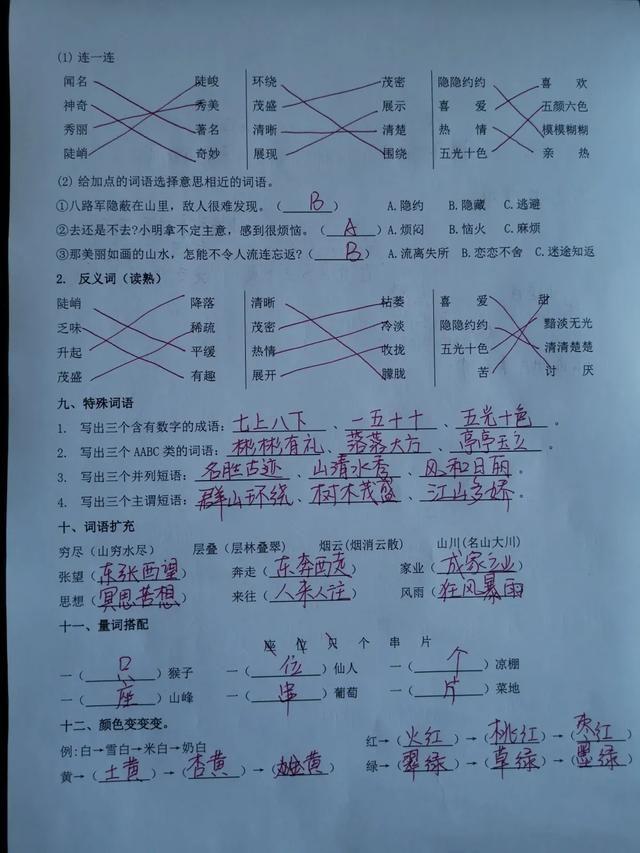 (1) 连一连
闻名 陡峻 环绕 茂密 隐隐约约 喜 欢
神奇 秀美 茂盛 展示 喜 爱 五颜六色
秀丽 著名 清晰 清楚 热 情 模模糊糊
陡峭 奇妙 展现 围绕 五光十色 亲 热
(2) 给加点的词语选择意思相近的词语。
①八路军隐蔽在山里，敌人很难发现。（ B ） A.隐约 B.隐藏 C.逃避
②去还是不去?小明拿不定主意，感到很烦恼。（ A ）A.烦闷 B.恼火 C.麻烦
③那美丽如画的山水，怎能不令人流连忘返?（ B ） A.流离失所 B.恋恋不舍 C.迷途知返
2. 反义词（读熟）
陡峭 降落 清晰 枯萎 喜 爱 甜
乏味 稀疏 茂密 冷淡 隐隐约约 黯淡无光
升起 平缓 热情 收拢 五光十色 清清楚楚
茂盛 有趣 展开 朦胧 苦 讨 厌
九、特殊词语
1. 写出三个含有数字的成语：七上八下、一五十十、五光十色。
2. 写出三个 AABC 类的词语：彬彬有礼、落落大方、亭亭玉立。
3. 写出三个并列短语：名胜古迹、山清水秀、风和日丽。
4. 写出三个主谓短语：群山环绕、树木茂盛、江山多娇。
十、词语扩充
穷尽（山穷水尽） 层叠（层林叠翠） 烟云(烟消云散) 山川(名山大川)
张望（东张西望） 奔走（东奔西走） 家业（成家立业）
思想（冥思苦想） 来往（人来人往） 风雨（狂风暴雨）
十一、量词搭配
座 位 只 个 串 片
一（只）猴子 一（位）仙人 一（个）凉棚
一（座）山峰 一（串）葡萄 一（片）菜地
十二、颜色变变变。
例:白→雪白→米白→奶白 红→（火红）→（桃红）→（枣红）
黄→（土黄）→（杏黄）→（黄） 绿→（翠绿）→（草绿）→（墨绿）